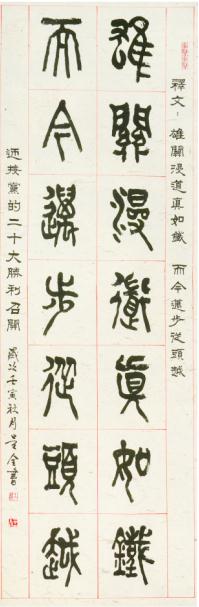 釋文：雄關漫道真如鐵　而今邁步從頭越
雄關漫道真如鐵
而今邁步從頭越
迎接黨的二十大勝利召開　歲次壬寅秋月